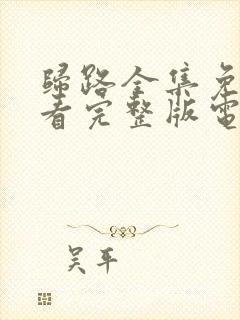 歸路全集免
看完整版電
吴平